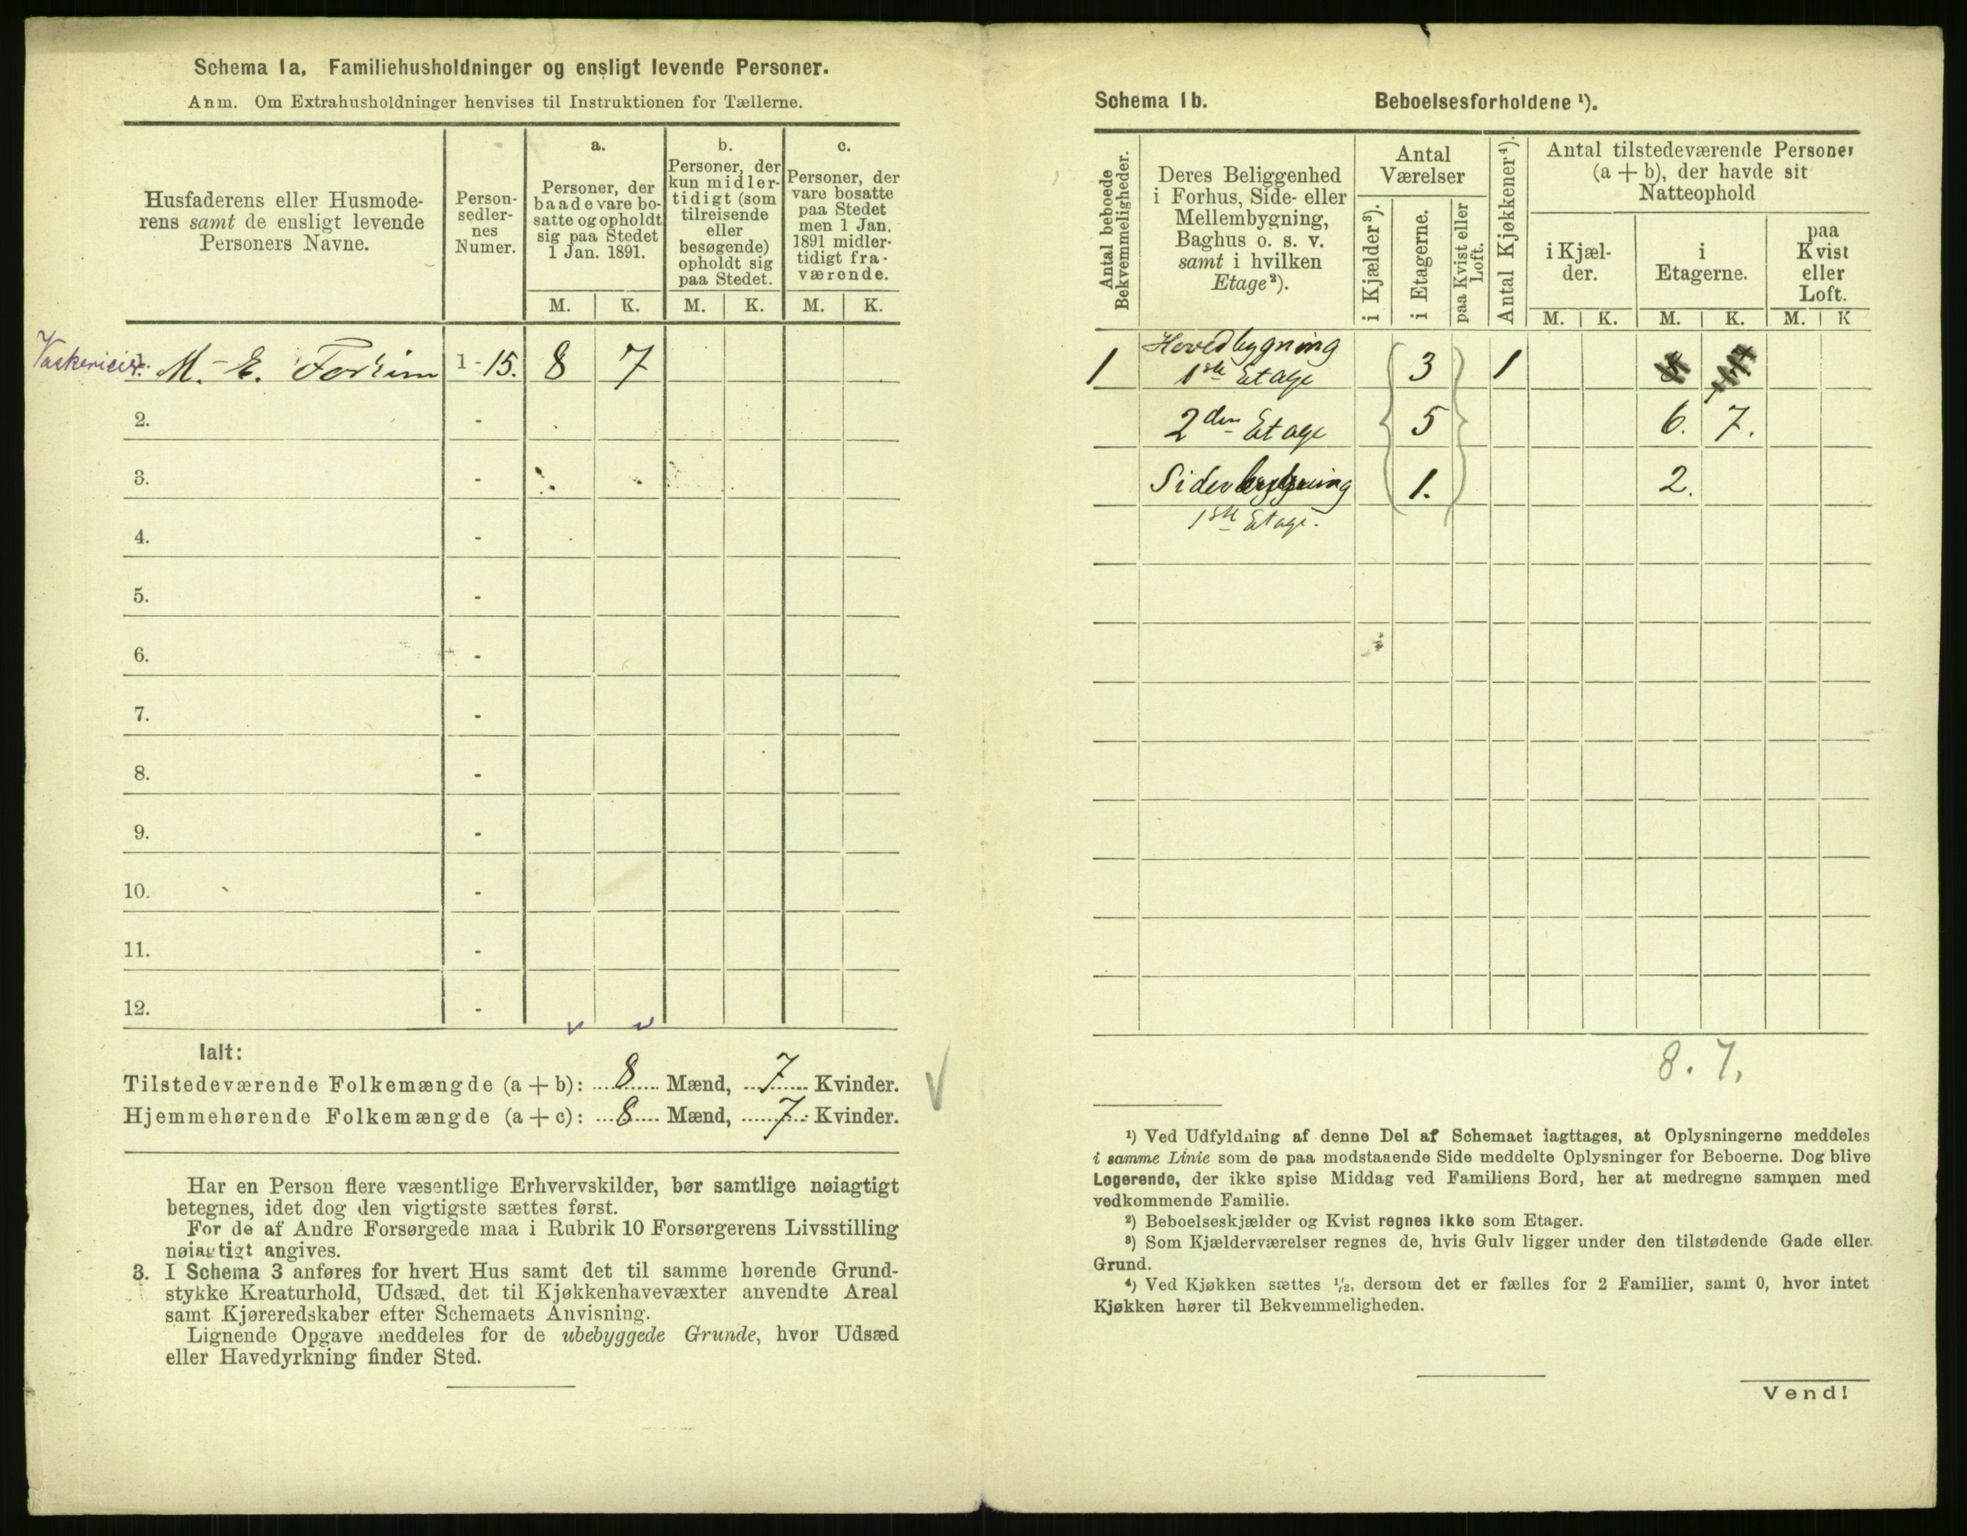 Schema 1a. Familiehusholdninger og ensligt levende Personer.
Anm. Om Extrahusholdninger henvises til Instruktionen for Tællerne.
Husfaderens eller Husmode-
rens samt de ensligt levende
Personers Navne.
Person-
sedler-
nes
Numer.
a.
Personer, der
baade vare bo-
satte og opholdt
sig paa Stedet
1 Jan. 1891.
b.
Personer, der
kun midler-
tidigt (som
tilreisende
eller
besøgende)
opholdt sig
paa Stedet.
c.
Personer, der
vare bosatte
paa Stedet
men 1 Jan.
1891 midler-
tidigt fra-
værende.
M. K. M. K. M. K.
M. E. 1-15. 8 7
2. -
3. -
4. -
5. -
6. -
7. -
8. -
9. -
10. -
11. -
12. -
Ialt:
Tilstedeværende Folkemængde (a + b): 8 Mænd, 7 Kvinder.
Hjemmehørende Folkemængde (a + c): 8 Mænd, 7 Kvinder.
Har en Person flere væsentlige Erhvervskilder, bør samtlige nøiagtigt
betegnes, idet dog den vigtigste sættes først.
For de af Andre Forsørgede maa i Rubrik 10 Forsørgerens Livsstilling
nøiagtigt angives.
3. I Schema 3 anføres for hvert Hus samt det til samme hørende Grund-
stykke Kreaturhold, Udsæd, det til Kjøkkenhavevæxter anvendte Areal
samt Kjøreredskaber efter Schemaets Anvisning.
Lignende Opgave meddeles for de ubebyggede Grunde, hvor Udsæd
eller Havedyrkning finder Sted.
Schema 1b. Beboelsesforholdene ¹).
Antal beboede
Bekvemmeligheder.
Deres Beliggenhed
i Forhus, Side- eller
Mellembygning,
Baghus o. s. v.
samt i hvilken
Etage²).
Antal
Værelser
i Kjælder³).
i Etagerne.
paa Kvist eller
Loft.
Antal Kjøkkener⁴).
Antal tilstedeværende Personer
(a + b), der havde sit
Natteophold
i Kjæl-
der.
i
Etagerne.
paa
Kvist
eller
Loft.
M. K. M. K. M. K
Hovedbygning
1 1ste Etage 3 1
2den Etage 5 6. 7.
Sidebygning 1. 2.
1ste Etage.
8. 7.
¹) Ved Udfyldning af denne Del af Schemaet iagttages, at Oplysningerne meddeles
i samme Linie som de paa modstaaende Side meddelte Oplysninger for Beboerne. Dog blive
Logerende, der ikke spise Middag ved Familiens Bord, her at medregne sammen med
vedkommende Familie.
²) Beboelseskjælder og Kvist regnes ikke som Etager.
³) Som Kjælderværelser regnes de, hvis Gulv ligger under den tilstødende Gade eller
Grund.
⁴) Ved Kjøkken sættes ½, dersom det er fælles for 2 Familier, samt 0, hvor intet
Kjøkken hører til Bekvemmeligheden.
Vend!